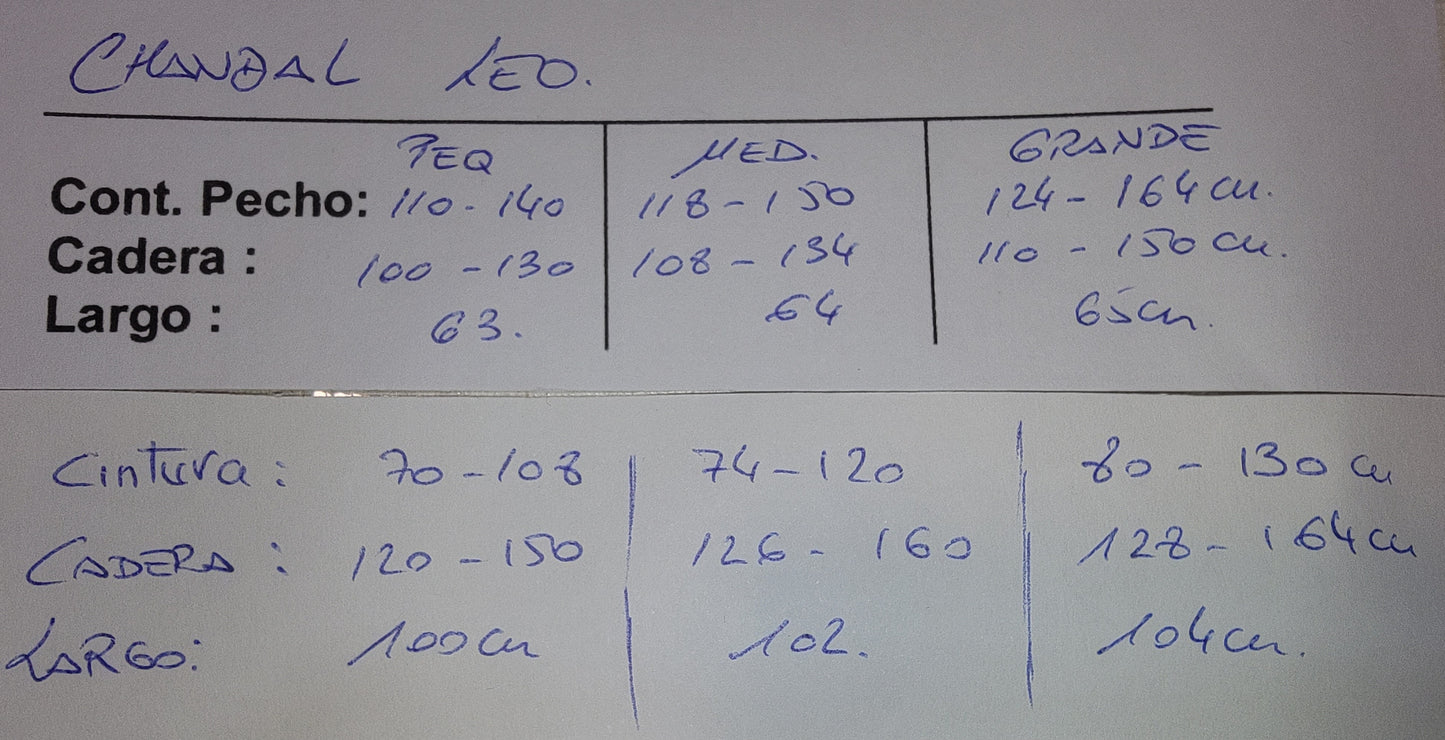 CHANDAL LEO.
PEQ MED. GRANDE
Cont. Pecho: 110-140 118-150 124-164 cm.
Cadera : 100-130 108-134 110-150 cm.
Largo : 63. 64 65cm.
Cintura: 70-108 74-120 80-130 cm
CADERA: 120-150 126-160 128-164 cm
LARGO: 100cm 102. 104cm.